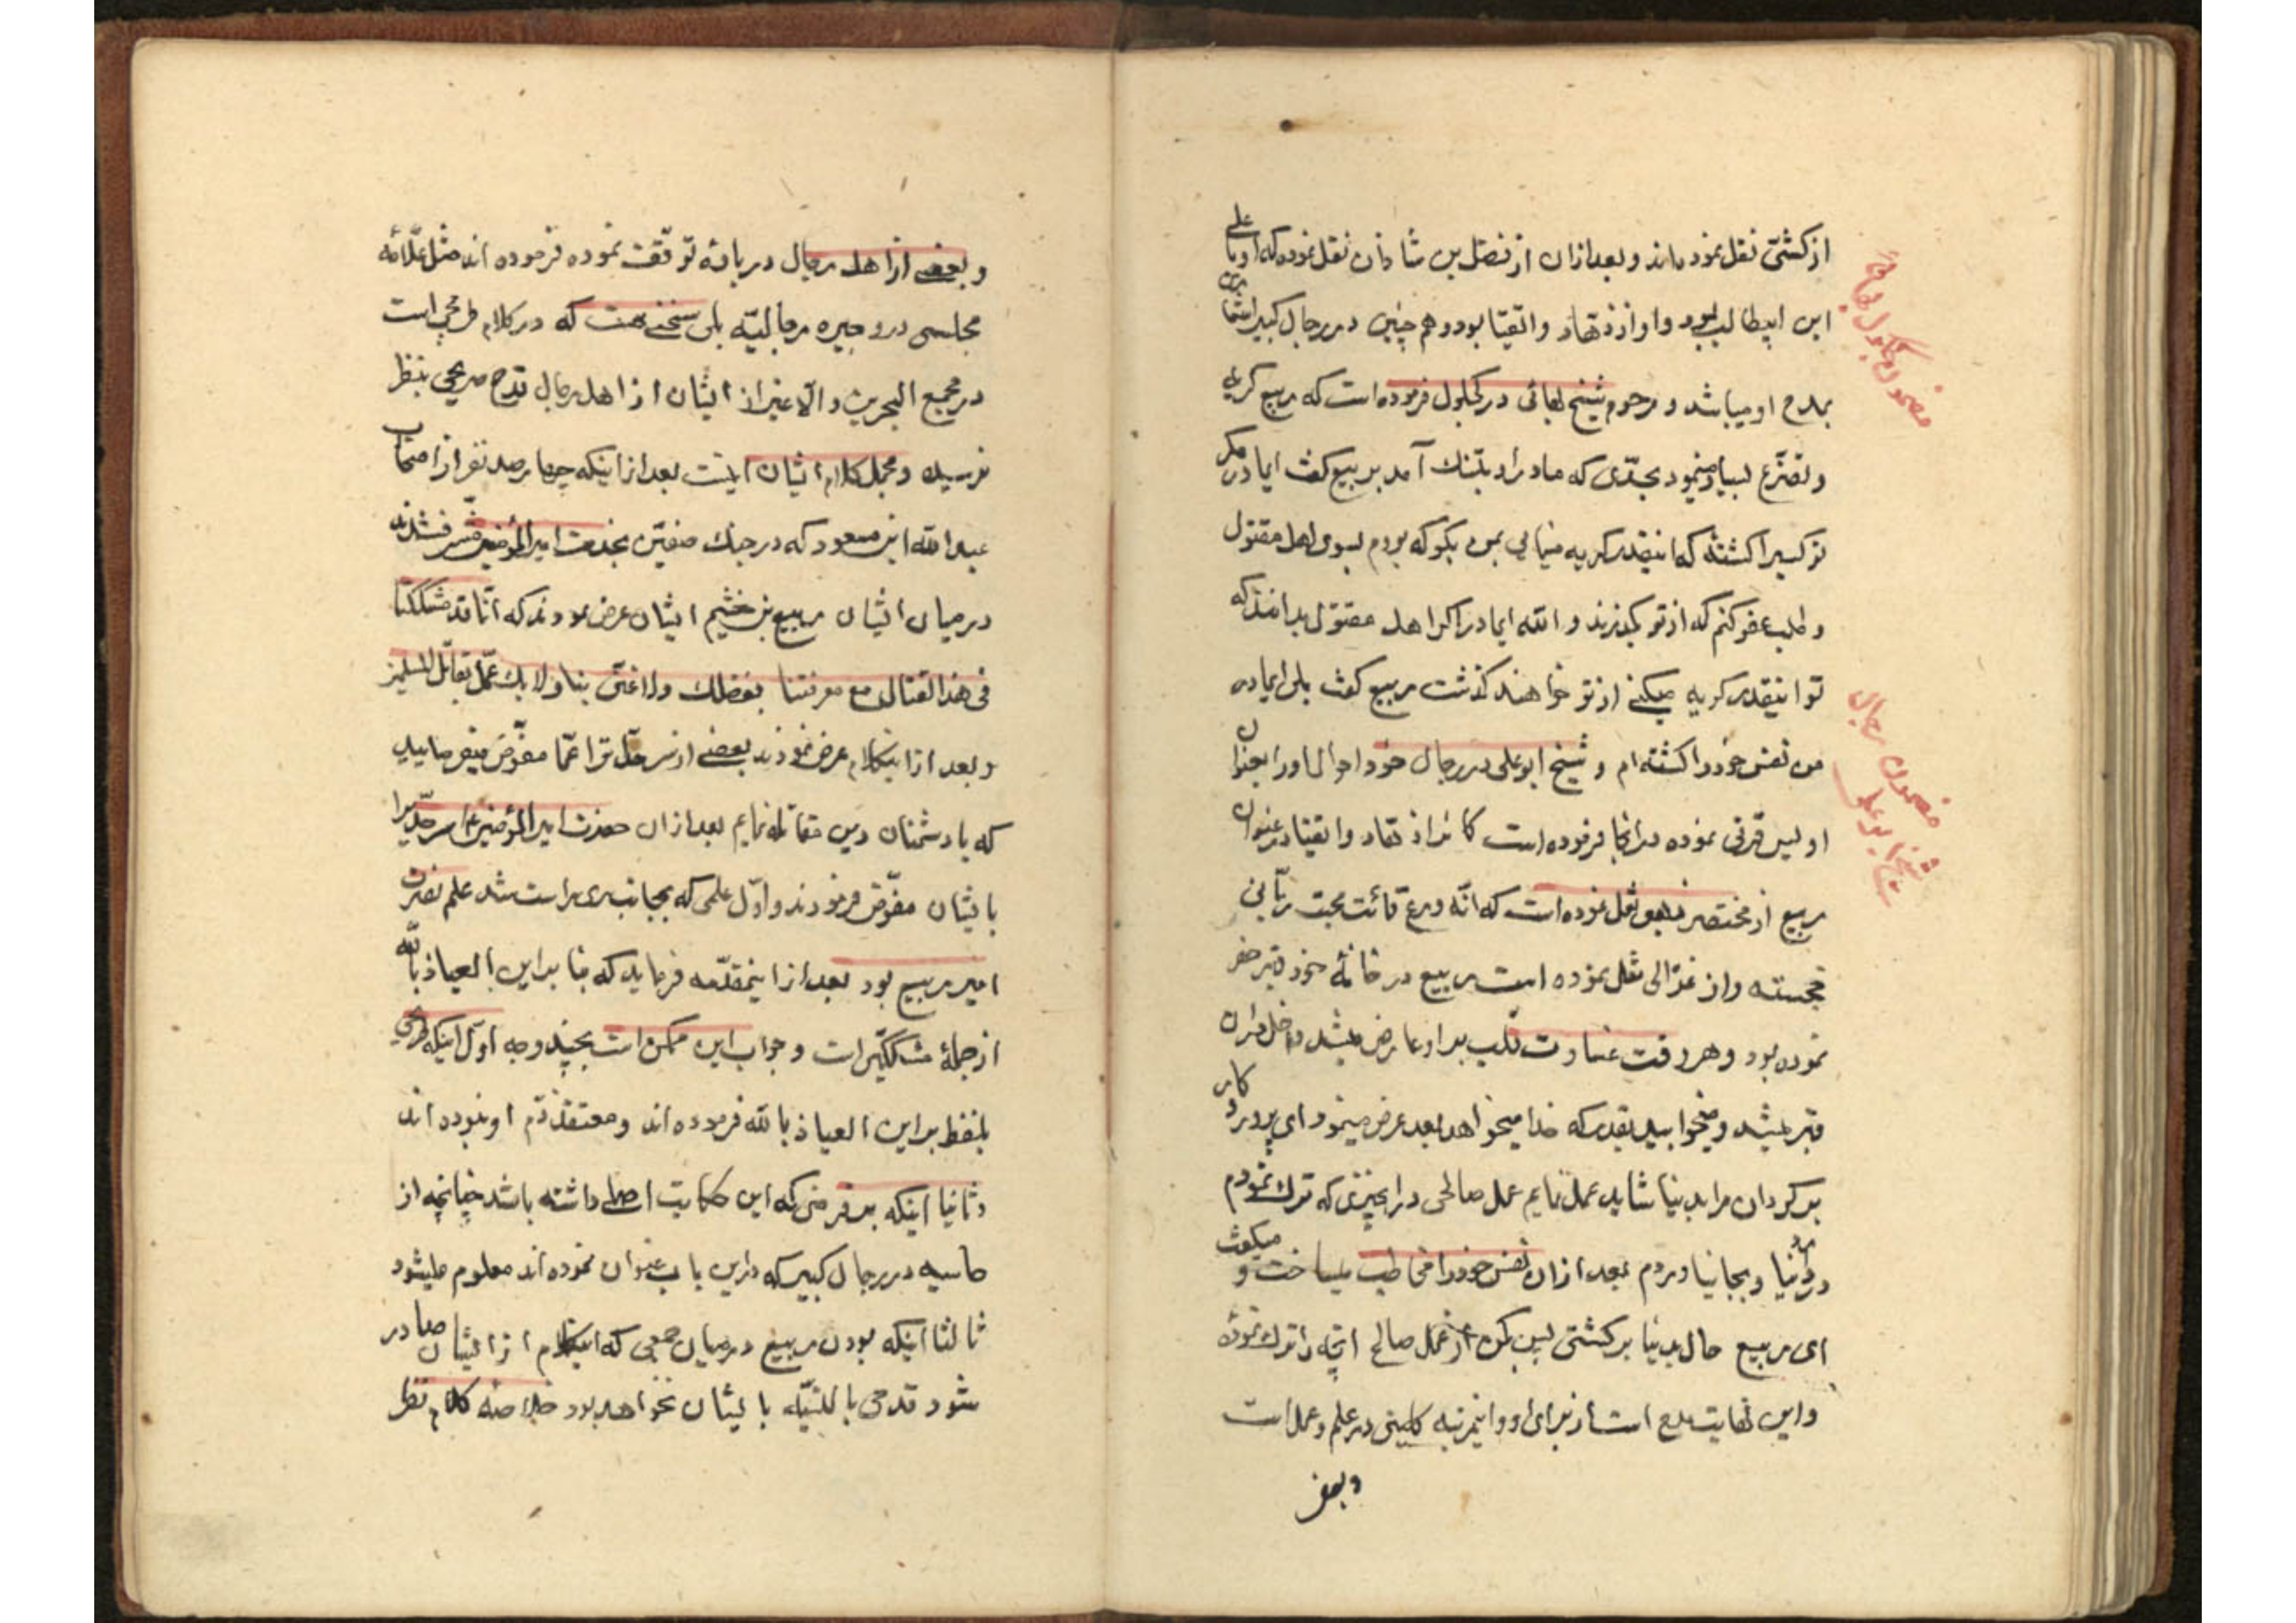 از کشّی نقل نموده‌اند و بعد از آن از فضل بن شاذان نقل نموده که او با علی
ابن ابیطالب بود و او از زهّاد و اتقیا بود و هم چنین در رجال کبیر
بمدح او میباشد و مرحوم شیخ بهائی در کچکول فرموده است که ربیع گریه
و تضرّع بسیار مینمود بحدّی که مادر او بتنک آمد بربیع گفت ایمادر مکر
تو کسیرا کشتهٔ که اینقدر گریه مینمائی بمن بگو که بروم بسوی اهل مقتول
و طلب عفو کنم که از تو بگذرند و الله ایمادر اگر اهل مقتول بدانند که
تو اینقدر گریه میکنی از تو خواهند گذشت ربیع گفت بلی ایمادر
من نفس خود را کشته‌ام و شیخ ابو علی در رجال خود احوال او را بعنوان
اویس قرنی نموده در انجا فرموده است کان من زهّاد و اتقیا در عنوان
ربیع از مختصر ذهبی نقل نموده است که انّه ورع قانت مخبت ربّانی
حجّة و از غزّالی نقل نموده است ربیع در خانهٔ خود قبر حفر
نموده بود و هر وقت قساوت قلب بر او عارض میشد داخل در آن
قبر میشد و میخوابید بقدر که خدا میخواهد بعد عرض مینمود ای پروردکار
برگردان مرا بدنیا شاید عمل نمایم عمل صالحی در آنچیزی که ترک نمودم
در دنیا و بجا نیاوردم بعد از آن نفس خود را مخاطب میساخت و میگفت
ای ربیع حال بدنیا برگشتی پس بکن از عمل صالح آنچه را ترک نمودهٔ
و این نهایت مدح است از برای او و اینمرتبه کاملیت در علم و عمل است
و بعض
مضمون کچکول بهائی
مضمون رجال
شیخ ابو علی
و بعضی از اهل رجال در بارهٔ توقّف نموده فرموده‌اند مثل علّامه
مجلسی در وجیزه رجالیّه بلی سخنی هست که در کلام طریحی است
در مجمع البحرین و الّا غیر از ایشان از اهل رجال قدح صریحی بنظر
نرسیده و مجمل کلام ایشان اینست بعد از اینکه چهار صد نفر از اصحاب
عبد الله ابن مسعود که در جنک صفّین بخدمت امیر المؤمنین مشرّف شدند
در میان ایشان ربیع بن خثیم ایشان عرض نمودند که انّا قد شککنا
فی هذا القتال مع معرفتنا بفضلک ولا غنی بنا ولا بک عمّن یقاتل المسلمین
و بعد از اینکلام عرض نمودند بعضی از سرحدّات را بما مفوّض بفرمایید
که با دشمنان دین مقاتله نمایم بعد از آن حضرت امیر المؤمنین ع سرحدّ ری را
بایشان مفوّض فرمودند و اوّل علمی که بجانب ری راست شد علم نصرت
امیر ربیع بود بعد از اینمقدّمه فرماید که بنا بر این العیاذ بالله
از جملهٔ مشککین است و جواب این ممکن است بچند وجه اوّل اینکه طریحی
بلفظ بر این العیاذ بالله فرموده‌اند و معتقد ذمّ او نبوده‌اند
و ثانیا اینکه بر فرضی که این حکایت اصلی داشته باشد چنانچه از
حاشیه در رجال کبیر که در این باب عنوان نموده‌اند معلوم میشود
ثالثا اینکه بودن ربیع در میان جمعی که اینکلام از ایشان صادر
شود قدحی بالنسبه بایشان نخواهد بود خلاصه کلام نظر